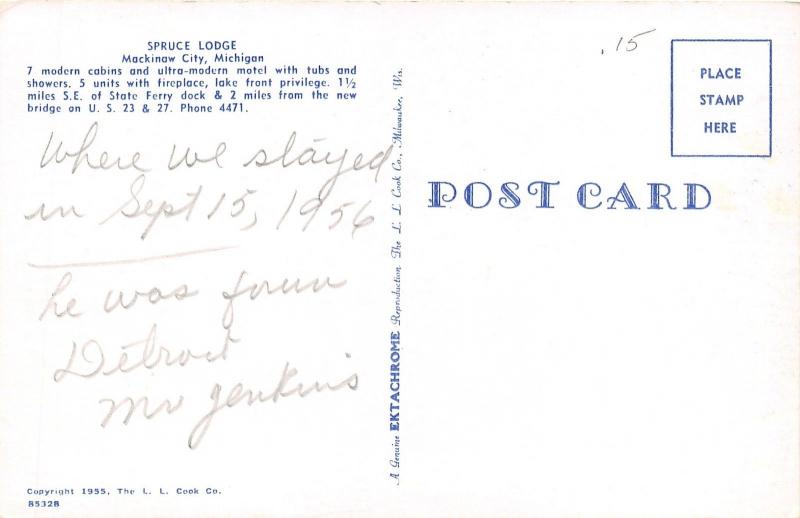 SPRUCE LODGE
Mackinaw City, Michigan
7 modern cabins and ultra-modern motel with tubs and
showers. 5 units with fireplace, lake front privilege. 1½
miles S.E. of State Ferry dock & 2 miles from the new
bridge on U. S. 23 & 27. Phone 4471.
Where we stayed
in Sept 15, 1956
he was
Detroit
Mr Jenkins
Copyright 1955, The L. L. Cook Co.
85328
A Genuine EKTACHROME Reproduction The L. L. Cook Co., Milwaukee, Wis.
.15
PLACE
STAMP
HERE
POST CARD